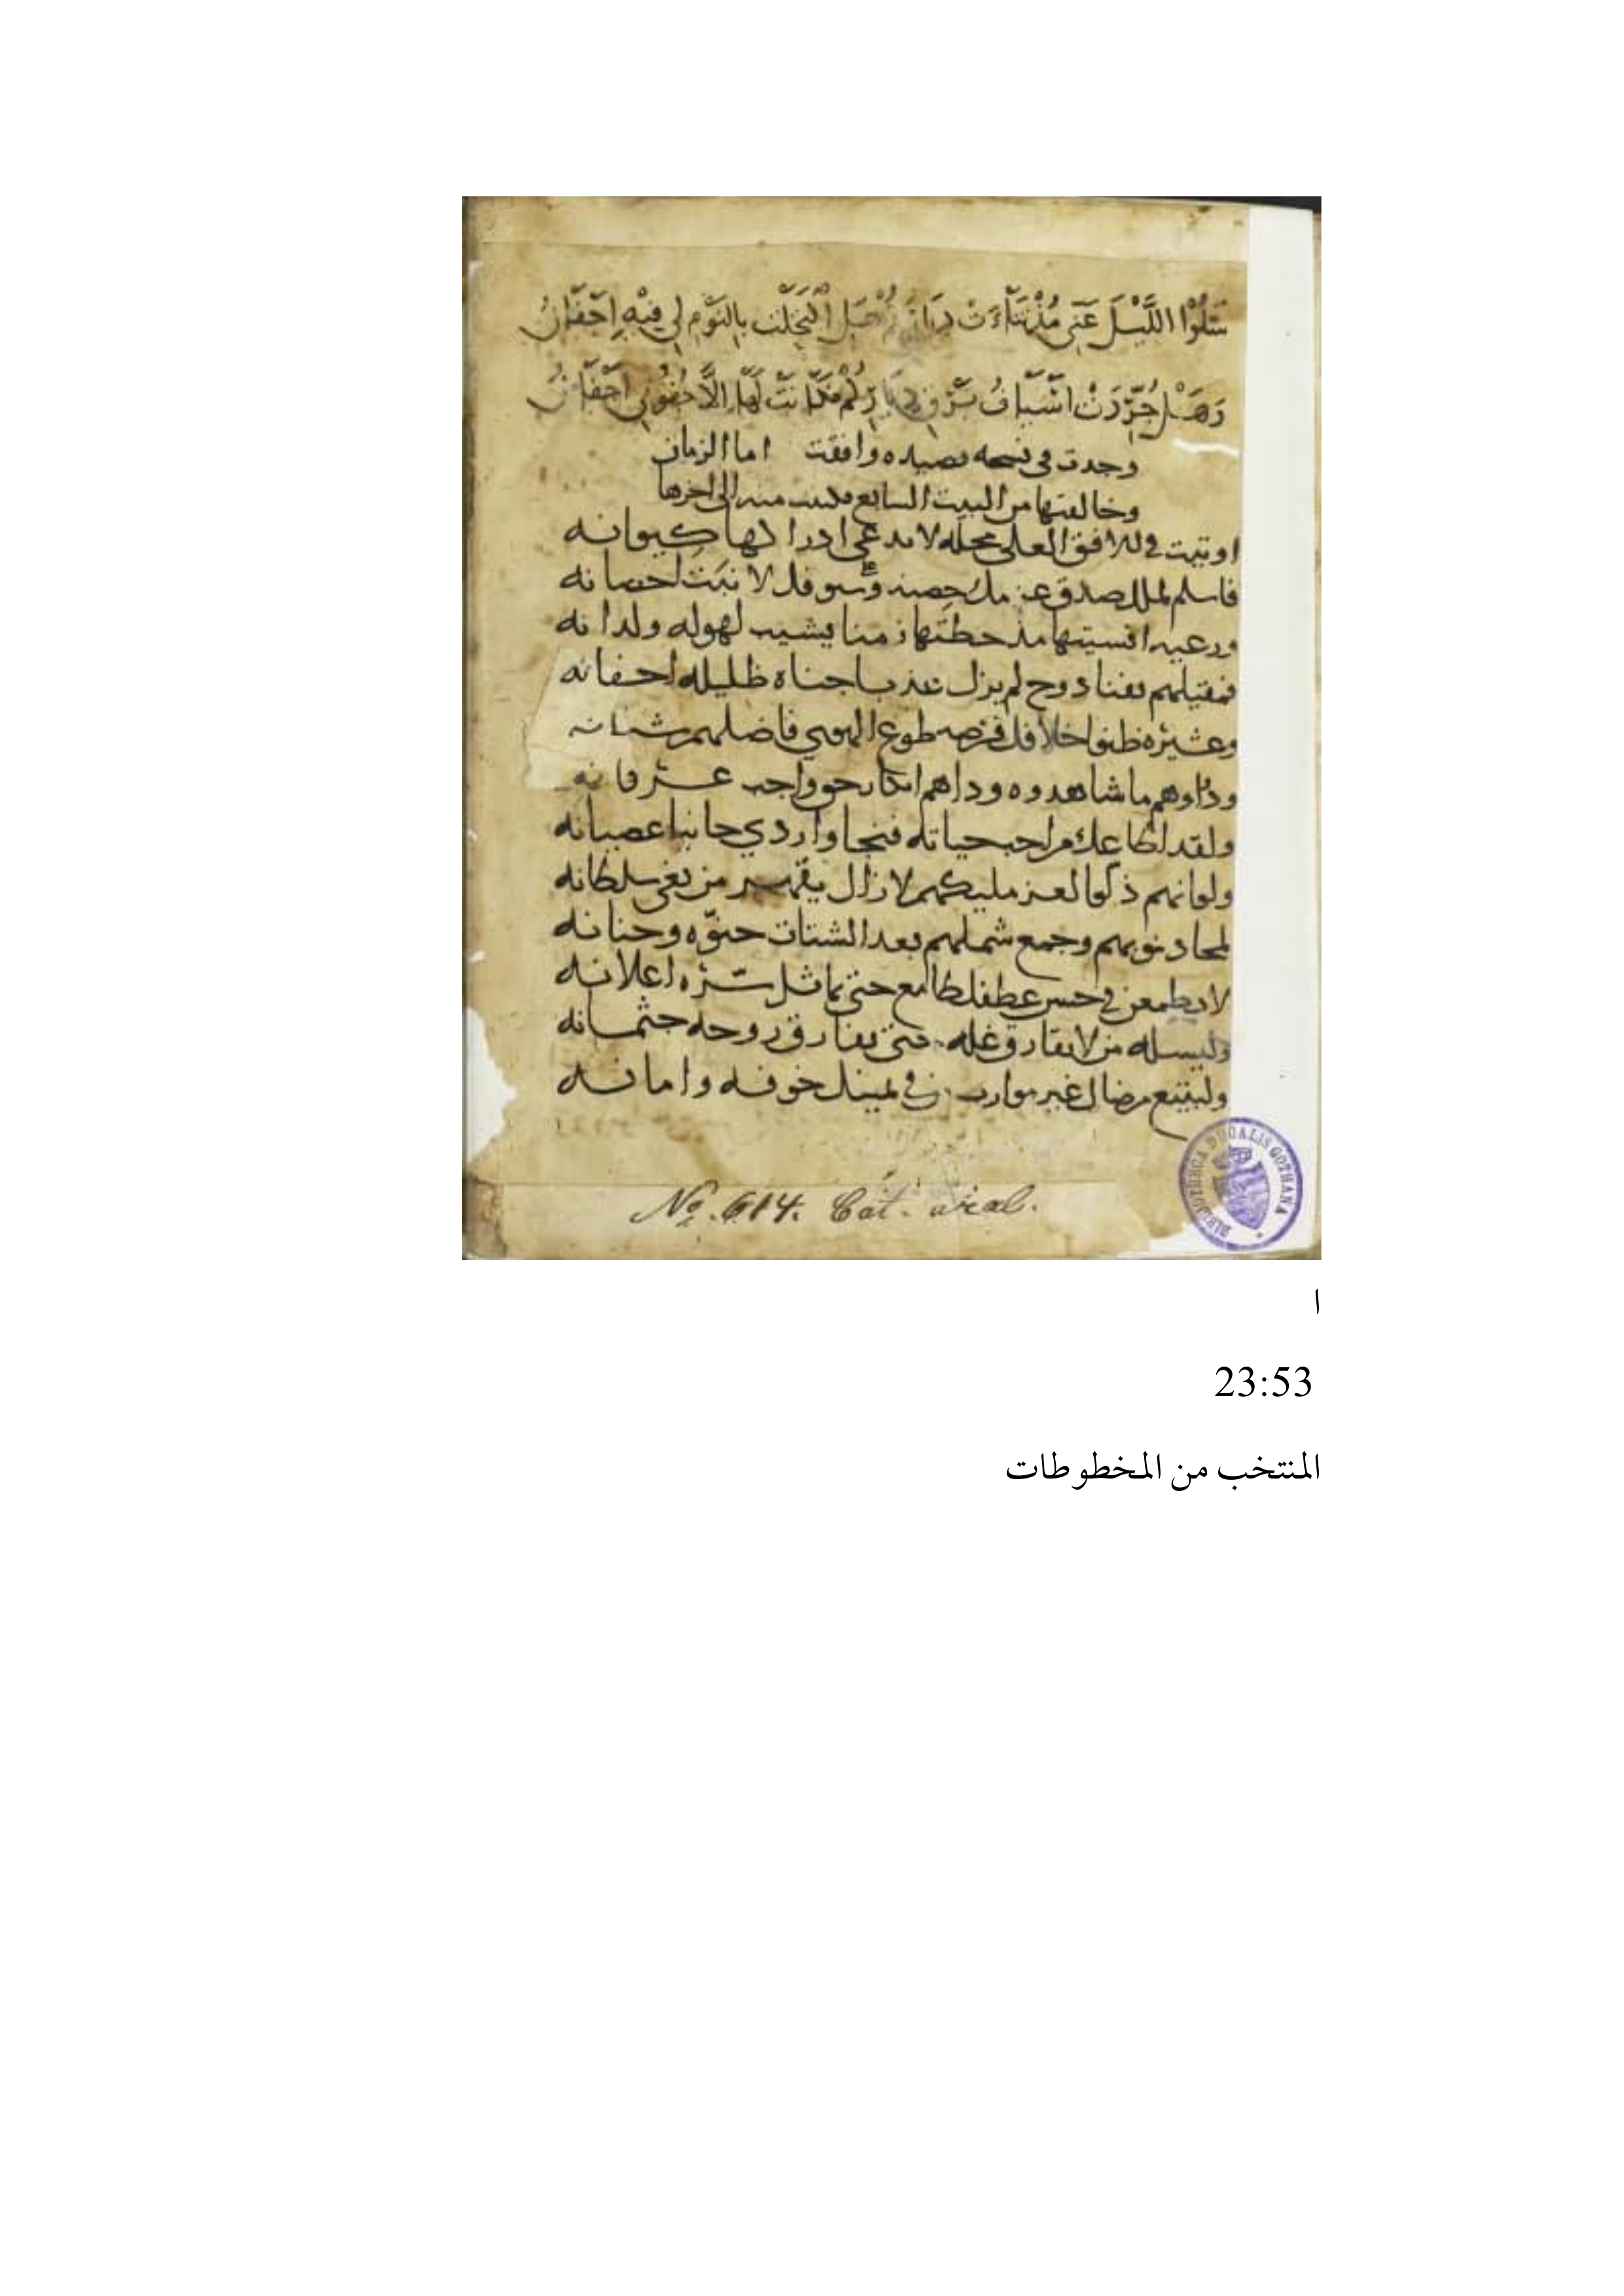 سَلُوا اللَّيْلَ عَنِّي مُذْ تَنَاءَتْ دِيَارُكُمْ هَلِ اكْتَحَلَتْ بِالنَّوْمِ لِي فِيْهِ اَجْفَانُ
وَهَلْ جُرِّدَتْ اَسْيَافُ بَرْقٍ دِيَارِكُمْ فَكَانَتْ لَهَا اِلَّا جُفُونِي اَجْفَانُ
وجدت في نسخه قصيده وافقت اما الزمان
وخالفتها من البيت السابع فكتبت منه الى اخرها
في الافق العلى محله لا يدعي ادراكها كيوانه
فاسلم لملك صدق عزمك حصنه
ورعيه انسيتها مذ حطتها زمنا يشيب لهوله ولدانه
دوح لم يزل عذبا جناه ظليله
وعشيره ظنوا خلافك فرصه طوع الهوى فاضلهم شيطانه
ما شاهدوه وداهم انكار حق واجب عرفانه
ولقد اطاعك من احب حياته فنجا واردي جانبا عصيانه
ولو انهم ذلوا لعز مليكهم لا زال يقهر من بغى سلطانه
لمحا ذنوبهم وجمع شملهم بعد الشتات حنوّه وحنانه
لا يطمعن في حسن عطفك طامع حتى يماثل سرّه اعلانه
من لا يفارق غله حتى تفارق روحه جثمانه
وليقنع غير موارب في خوفه وامانه
No. 614. Cat. arab.
BIBLIOTHECA DUCALIS GOTHANA
ا
23:53
المنتخب من المخطوطات